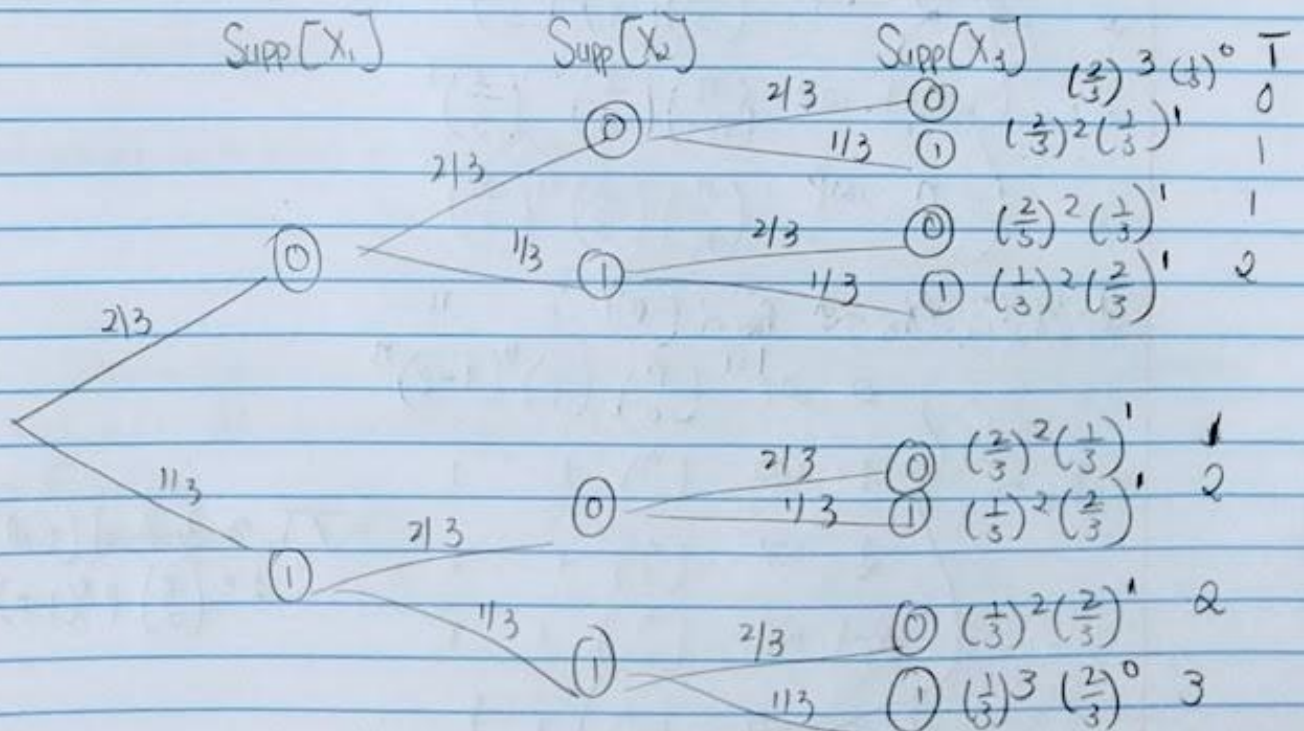 Supp[X₁] Supp[X₂] Supp[X₃] T
2/3 0 (2/3)³(1/3)⁰ 0
0
1/3 1 (2/3)²(1/3)¹ 1
2/3
2/3 0 (2/3)²(1/3)¹ 1
0 1/3 1
1/3 1 (1/3)²(2/3)¹ 2
2/3
2/3 0 (2/3)²(1/3)¹ 1
1/3 0
1/3 1 (1/3)²(2/3)¹ 2
2/3
1
1/3 2/3 0 (1/3)²(2/3)¹ 2
1
1/3 1 (1/3)³(2/3)⁰ 3